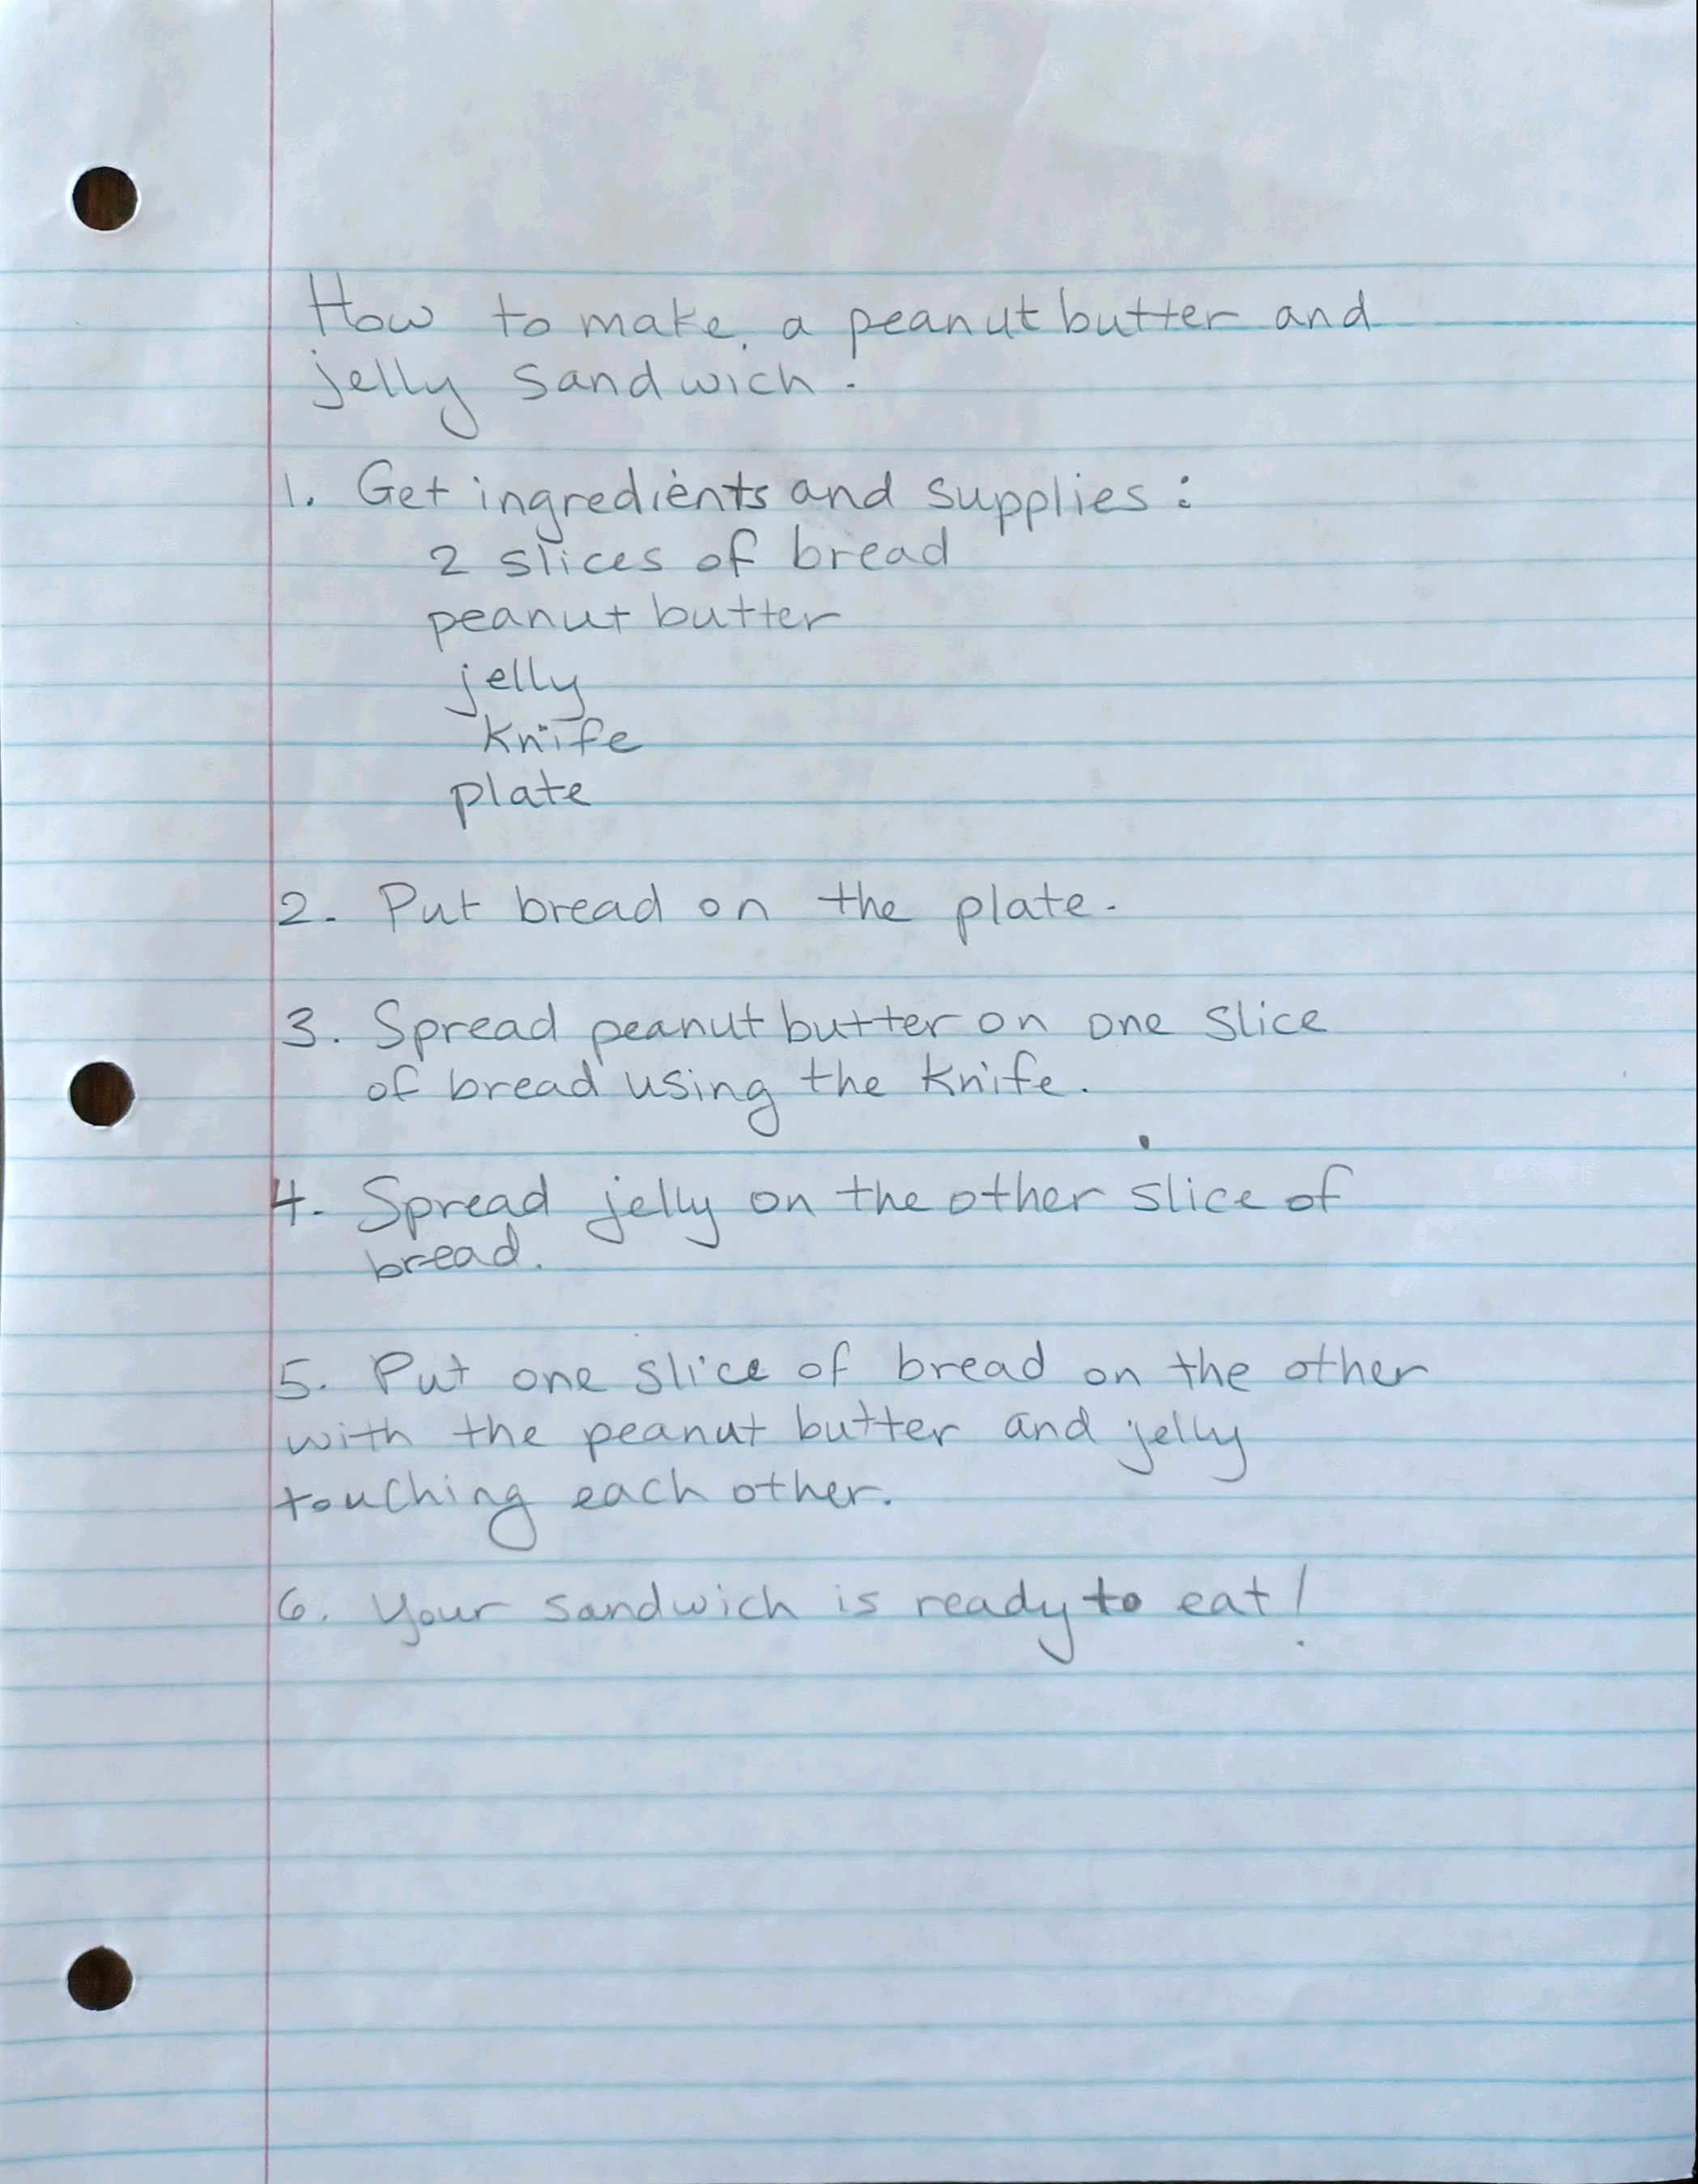 How to make a peanut butter and
jelly sandwich.
1. Get ingredients and supplies:
2 slices of bread
peanut butter
jelly
knife
plate
2. Put bread on the plate.
3. Spread peanut butter on one slice
of bread using the knife.
4. Spread jelly on the other slice of
bread.
5. Put one slice of bread on the other
with the peanut butter and jelly
touching each other.
6. Your sandwich is ready to eat!